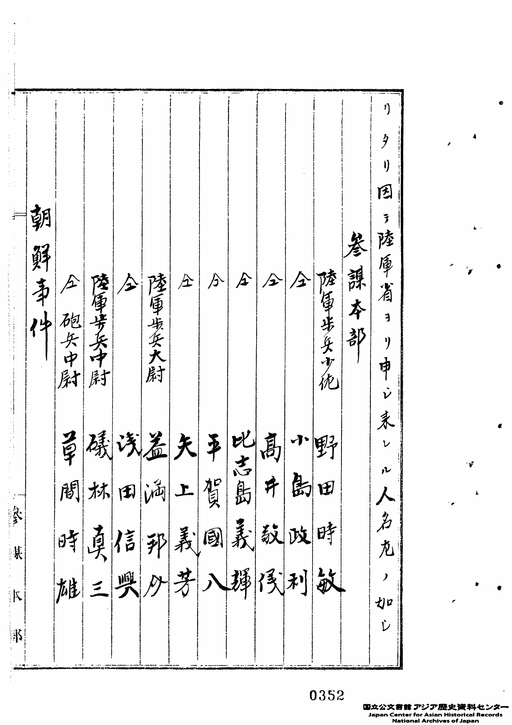 リタリ因テ陸軍省ヨリ申シ来シル人名左ノ如シ
參謀本部
陸軍歩兵少佐 野田時敏
仝 小島政利
仝 髙井敬儀
仝 比志島義輝
仝 平賀國八
仝 矢上義芳
陸軍歩兵大尉 益満邦介
仝 淺田信興
陸軍歩兵中尉 礒林真三
仝 砲兵中尉 草間時雄
朝鮮事件
參謀本部
0352
国立公文書館 アジア歴史資料センター
Japan Center for Asian Historical Records
National Archives of Japan